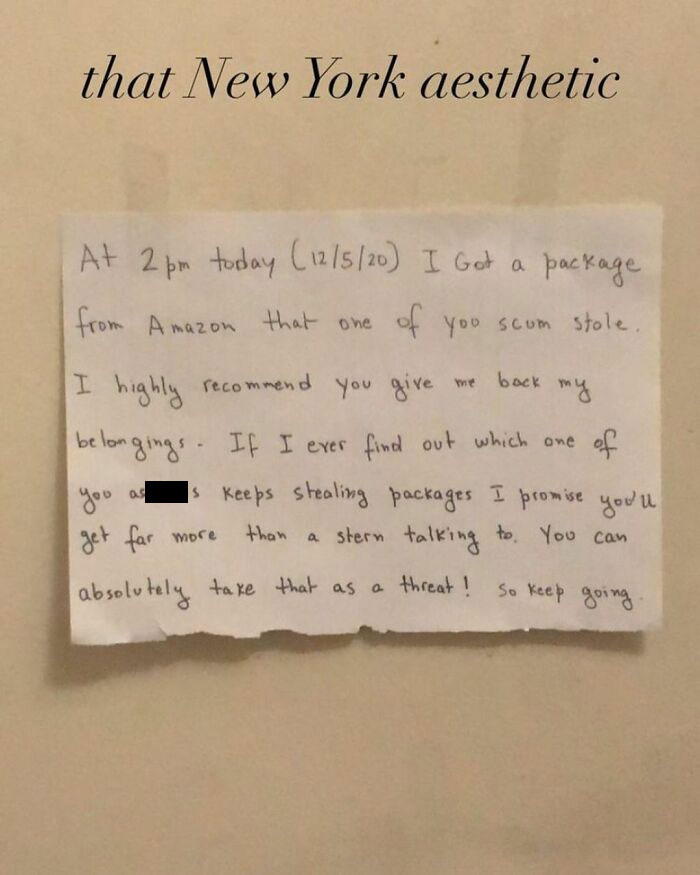 that New York aesthetic
At 2pm today (12/5/20) I Got a package
from Amazon that one of you scum stole.
I highly recommend you give me back my
belongings. If I ever find out which one of
you as s keeps stealing packages I promise you'll
get far more than a stern talking to. You can
absolutely take that as a threat! So keep going.